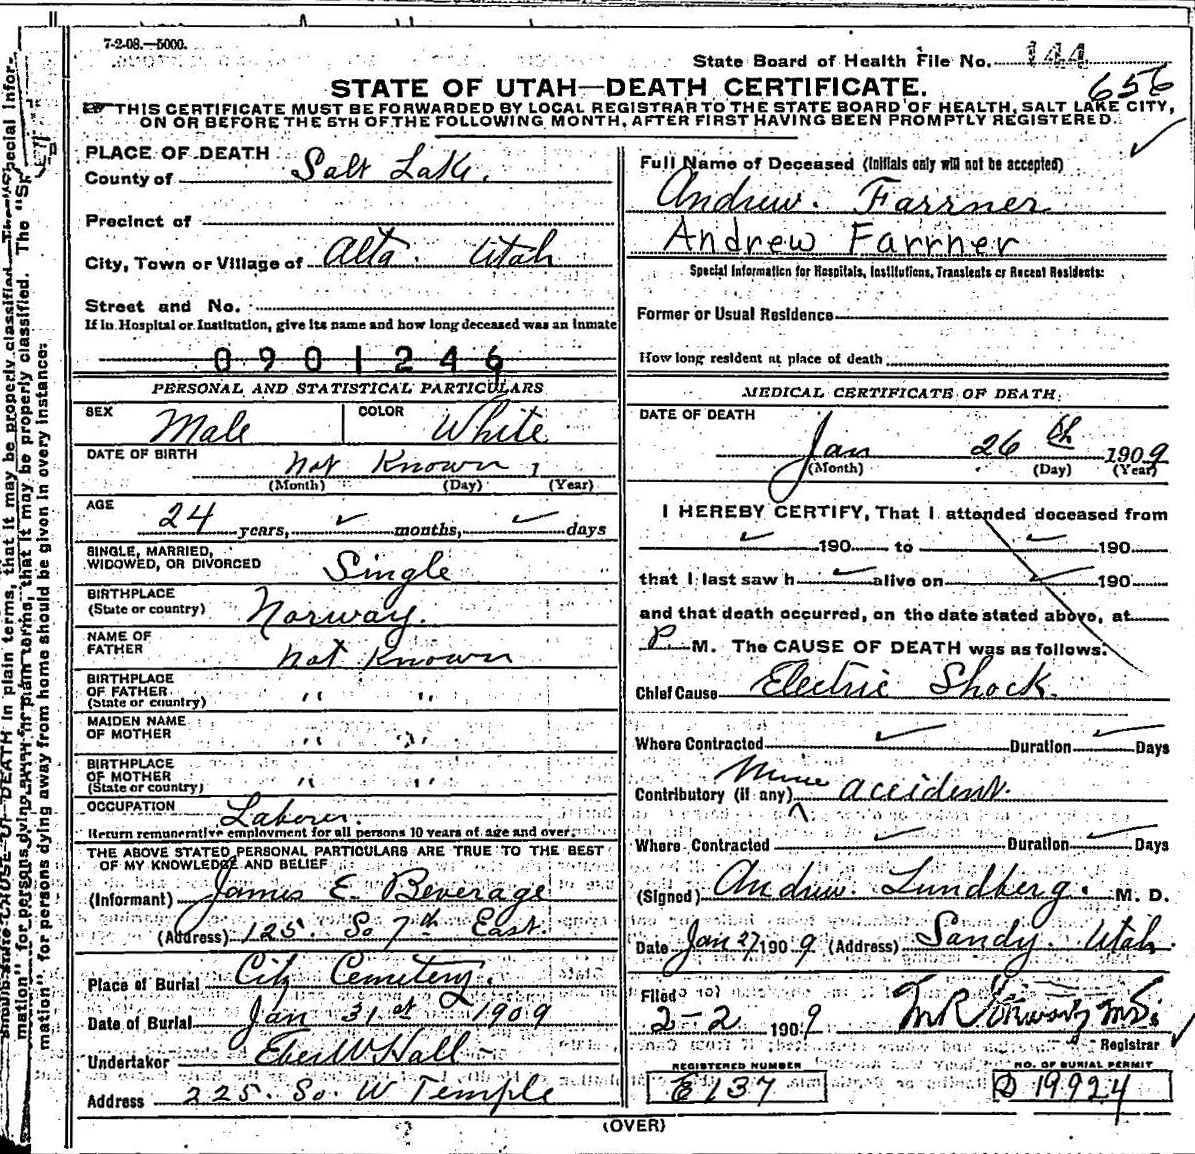 7-2-08.—5000.
State Board of Health File No. 144
656
STATE OF UTAH—DEATH CERTIFICATE.
THIS CERTIFICATE MUST BE FORWARDED BY LOCAL REGISTRAR TO THE STATE BOARD OF HEALTH, SALT LAKE CITY,
ON OR BEFORE THE 5TH OF THE FOLLOWING MONTH, AFTER FIRST HAVING BEEN PROMPTLY REGISTERED.
PLACE OF DEATH
County of Salt Lake.
Precinct of
City, Town or Village of Alta. Utah
Street and No.
If in Hospital or Institution, give its name and how long deceased was an inmate
0901246
PERSONAL AND STATISTICAL PARTICULARS
SEX Male COLOR White
DATE OF BIRTH Not Known 1
(Month) (Day) (Year)
AGE
24 years, ✓ months, ✓ days
SINGLE, MARRIED,
WIDOWED, OR DIVORCED Single
BIRTHPLACE
(State or country) Norway.
NAME OF
FATHER Not Known
BIRTHPLACE
OF FATHER
(State or country) " "
MAIDEN NAME
OF MOTHER " "
BIRTHPLACE
OF MOTHER
(State or country) " "
OCCUPATION Laborer.
Return remunerative employment for all persons 10 years of age and over.
THE ABOVE STATED PERSONAL PARTICULARS ARE TRUE TO THE BEST
OF MY KNOWLEDGE AND BELIEF
(Informant) James E. Beverage
(Address) 125. So 7th East.
Place of Burial City Cemetery.
Date of Burial Jan 31st 1909
Undertaker Eber W Hall
Address 225. So. W Temple
Full Name of Deceased (Initials only will not be accepted)
Andrew. Farrner
Andrew Farrner
Special Information for Hospitals, Institutions, Transients or Recent Residents:
Former or Usual Residence
How long resident at place of death
MEDICAL CERTIFICATE OF DEATH.
DATE OF DEATH
Jan 26th 1909
(Month) (Day) (Year)
I HEREBY CERTIFY, That I attended deceased from
✓ 190 to ✓ 190
that I last saw h ✓ alive on ✓ 190
and that death occurred, on the date stated above, at
P. M. The CAUSE OF DEATH was as follows:
Chief Cause Electric Shock.
Where Contracted ✓ Duration ✓ Days
Contributory (if any) Mine accident.
Where Contracted ✓ Duration ✓ Days
(Signed) Andrew. Lundberg. M. D.
Date Jan 27 1909 (Address) Sandy. Utah.
Filed
2-2 1909
Registrar
REGISTERED NUMBER
E 137
NO. OF BURIAL PERMIT
D 19924
(OVER)
DEATH in plain terms, that it may be properly classified. The "Special Infor-
mation" for persons dying away from home should be given in every instance.